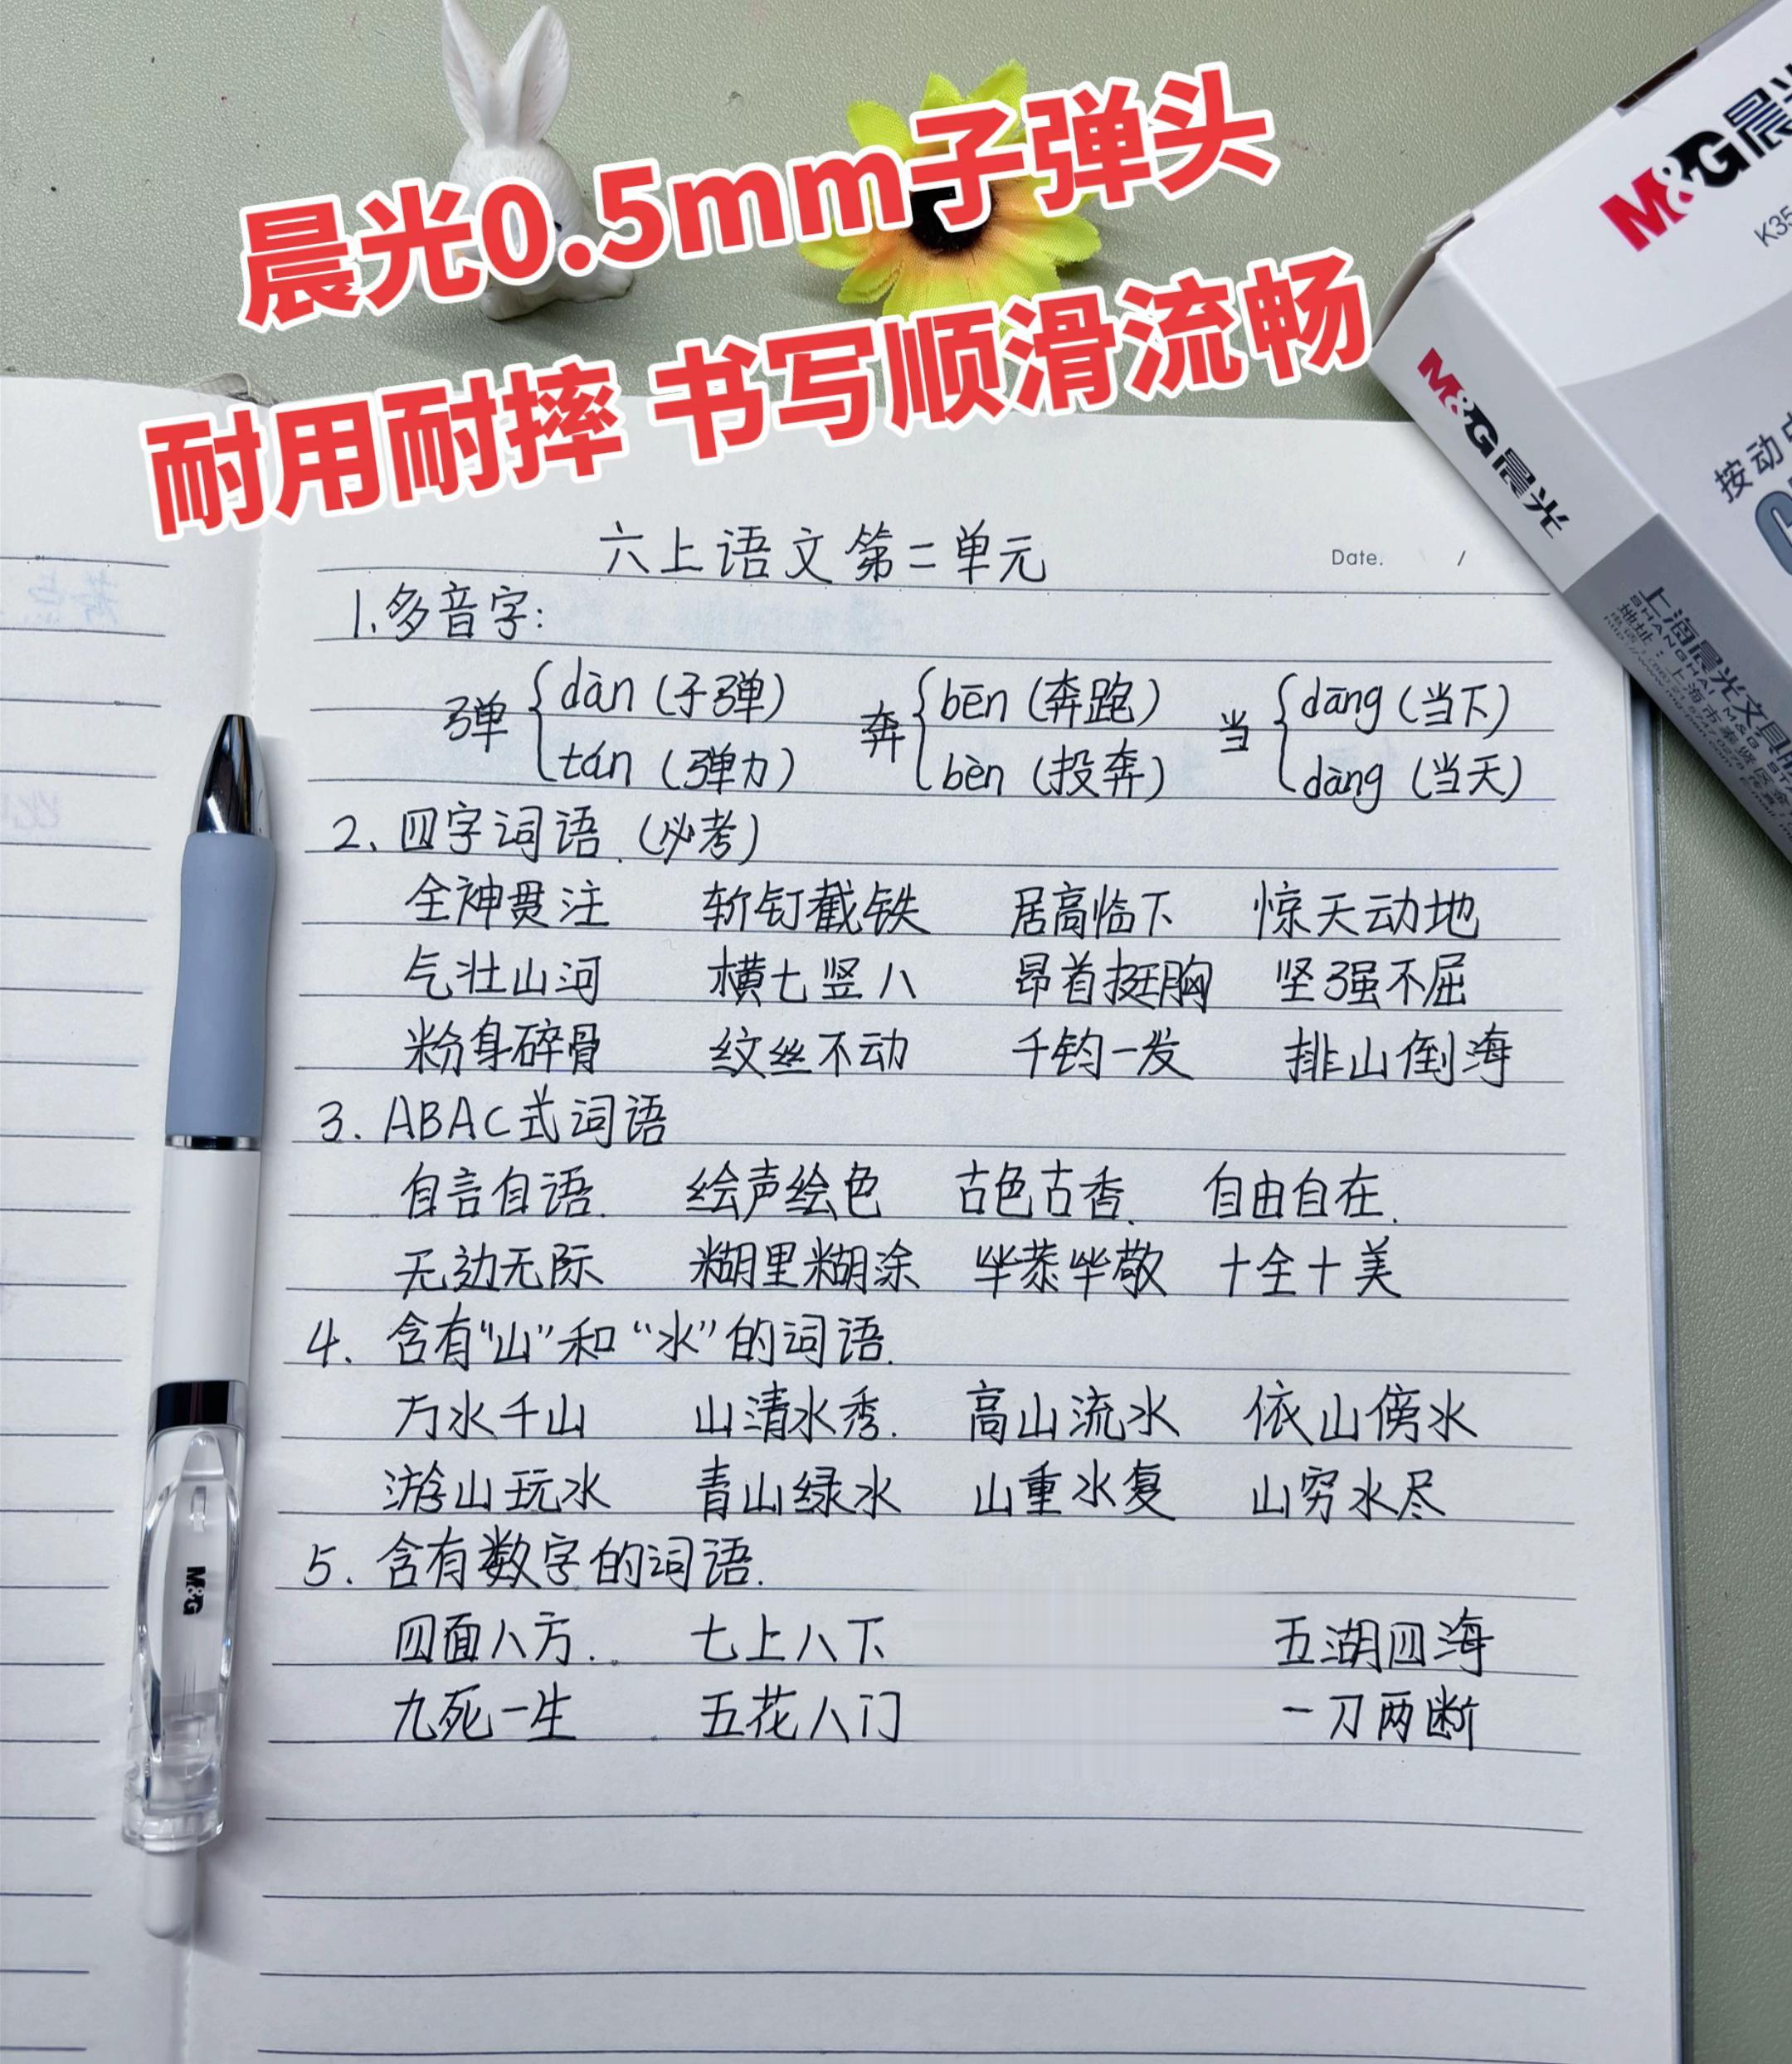 晨光0.5mm子弹头
耐用耐摔 书写顺滑流畅
M&G晨光
K35
按动
M&G晨光
上海晨光文具
SHANGHAI M&G
六上语文第二单元
Date. /
1.多音字:
弹 { dàn (子弹) 奔 { bēn (奔跑) 当 { dāng (当下)
tán (弹力) bèn (投奔) dàng (当天)
2、四字词语.(必考)
全神贯注 斩钉截铁 居高临下 惊天动地
气壮山河 横七竖八 昂首挺胸 坚强不屈
粉身碎骨 纹丝不动 千钧一发 排山倒海
3. ABAC式词语
自言自语. 绘声绘色 古色古香. 自由自在.
无边无际 糊里糊涂 毕恭毕敬 十全十美
4. 含有“山”和“水”的词语.
万水千山 山清水秀. 高山流水 依山傍水
游山玩水 青山绿水 山重水复 山穷水尽
5. 含有数字的词语.
四面八方. 七上八下 五湖四海
九死一生 五花八门 一刀两断
M&G